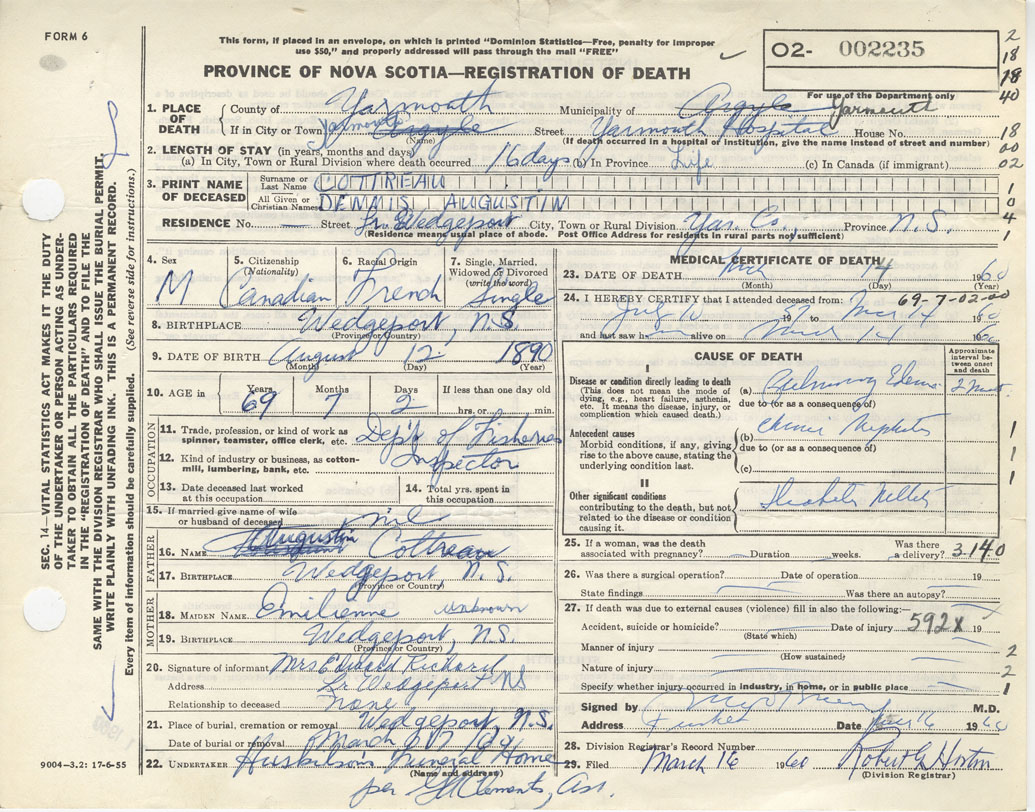 FORM 6
This form, if placed in an envelope, on which is printed "Dominion Statistics—Free, penalty for improper
use $50," and properly addressed will pass through the mail "FREE"
O2- 002235
For use of the Department only
2
18
18
40
PROVINCE OF NOVA SCOTIA—REGISTRATION OF DEATH
1. PLACE OF DEATH
County of Yarmouth Municipality of Argyle Yarmouth
If in City or Town Yarmouth Argyle Street Yarmouth Hospital House No.
(Name) (If death occurred in a hospital or institution, give the name instead of street and number)
18
00
02
2. LENGTH OF STAY (in years, months and days)
(a) In City, Town or Rural Division where death occurred 16 days (b) In Province Life (c) In Canada (if immigrant)
3. PRINT NAME OF DECEASED
Surname or Last Name COTTREAU
All Given or Christian Names DENNIS AUGUSTIN
1
0
4
1
RESIDENCE No. — Street Lr. Wedgeport City, Town or Rural Division Yar. Co., Province N.S.
(Residence means usual place of abode. Post Office Address for residents in rural parts not sufficient)
4. Sex M
5. Citizenship (Nationality) Canadian
6. Racial Origin French
7. Single, Married, Widowed or Divorced (write the word) Single
8. BIRTHPLACE Wedgeport, N.S.
(Province or Country)
9. DATE OF BIRTH August 12 1890
(Month) (Day) (Year)
10. AGE in Years 69 Months 7 Days 2 If less than one day old hrs. or min.
OCCUPATION
11. Trade, profession, or kind of work as spinner, teamster, office clerk, etc. Dep't of Fisheries
12. Kind of industry or business, as cotton-mill, lumbering, bank, etc. Inspector
13. Date deceased last worked at this occupation
14. Total yrs. spent in this occupation
15. If married give name of wife or husband of deceased
FATHER
16. NAME Augustin Cottreau
17. BIRTHPLACE Wedgeport N.S.
(Province or Country)
MOTHER
18. MAIDEN NAME Emilienne unknown
19. BIRTHPLACE Wedgeport, N.S.
(Province or Country)
20. Signature of informant Mrs Edward Richard
Address Lr Wedgeport NS
Relationship to deceased none
21. Place of burial, cremation or removal Wedgeport, N.S.
Date of burial or removal March 17
22. UNDERTAKER Huskilson's Funeral Home
(Name and address)
per Clements, Ass.
MEDICAL CERTIFICATE OF DEATH
23. DATE OF DEATH Mch 14 1960
(Month) (Day) (Year)
24. I HEREBY CERTIFY that I attended deceased from: 69-7-02-00
July 10 19 to Mar 14 1960
and last saw h alive on March 14 1960
CAUSE OF DEATH
Approximate interval between onset and death
I
Disease or condition directly leading to death
(This does not mean the mode of dying, e.g., heart failure, asthenia, etc. It means the disease, injury, or complication which caused death.)
(a) Pulmonary Edema
due to (or as a consequence of)
Antecedent causes
Morbid conditions, if any, giving rise to the above cause, stating the underlying condition last.
(b) Chronic Nephritis
due to (or as a consequence of)
(c)
1
1
1
II
Other significant conditions
contributing to the death, but not related to the disease or condition causing it.
Diabetes Mellitus
25. If a woman, was the death associated with pregnancy? Duration weeks. Was there a delivery? 3.140
26. Was there a surgical operation? Date of operation 19
State findings Was there an autopsy?
27. If death was due to external causes (violence) fill in also the following:—
Accident, suicide or homicide? Date of injury 592X 19
(State which)
Manner of injury 2
(How sustained)
Nature of injury 2
Specify whether injury occurred in industry, in home, or in public place 1
Signed by M.D.
Address Date 16 1960
28. Division Registrar's Record Number
29. Filed March 16 1960 Robert G Horton
(Division Registrar)
SEC. 14—VITAL STATISTICS ACT MAKES IT THE DUTY
OF THE UNDERTAKER OR PERSON ACTING AS UNDER-
TAKER TO OBTAIN ALL THE PARTICULARS REQUIRED
IN THE "REGISTRATION OF DEATH" AND TO FILE THE
SAME WITH THE DIVISION REGISTRAR WHO SHALL ISSUE THE BURIAL PERMIT.
WRITE PLAINLY WITH UNFADING INK. THIS IS A PERMANENT RECORD.
Every item of information should be carefully supplied. (See reverse side for instructions.)
9004-3.2: 17-6-55